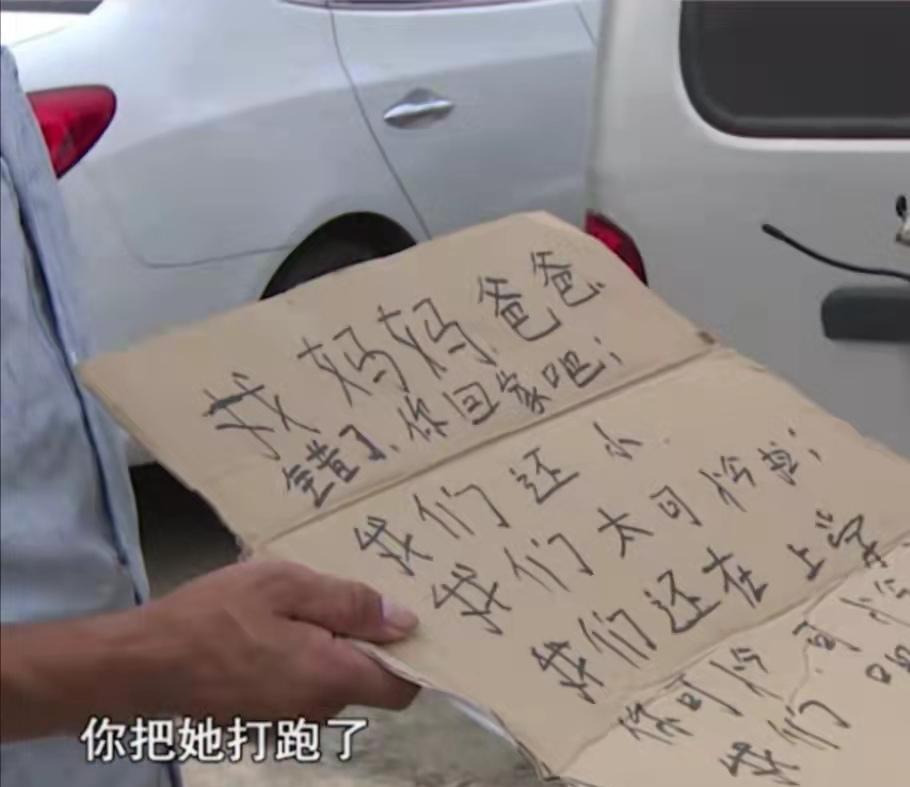 找妈妈爸爸、
错了、你回家吧；
我们还小.
我们太可怜拉；
我们还在上学
你可怜可怜
我们吧
你把她打跑了